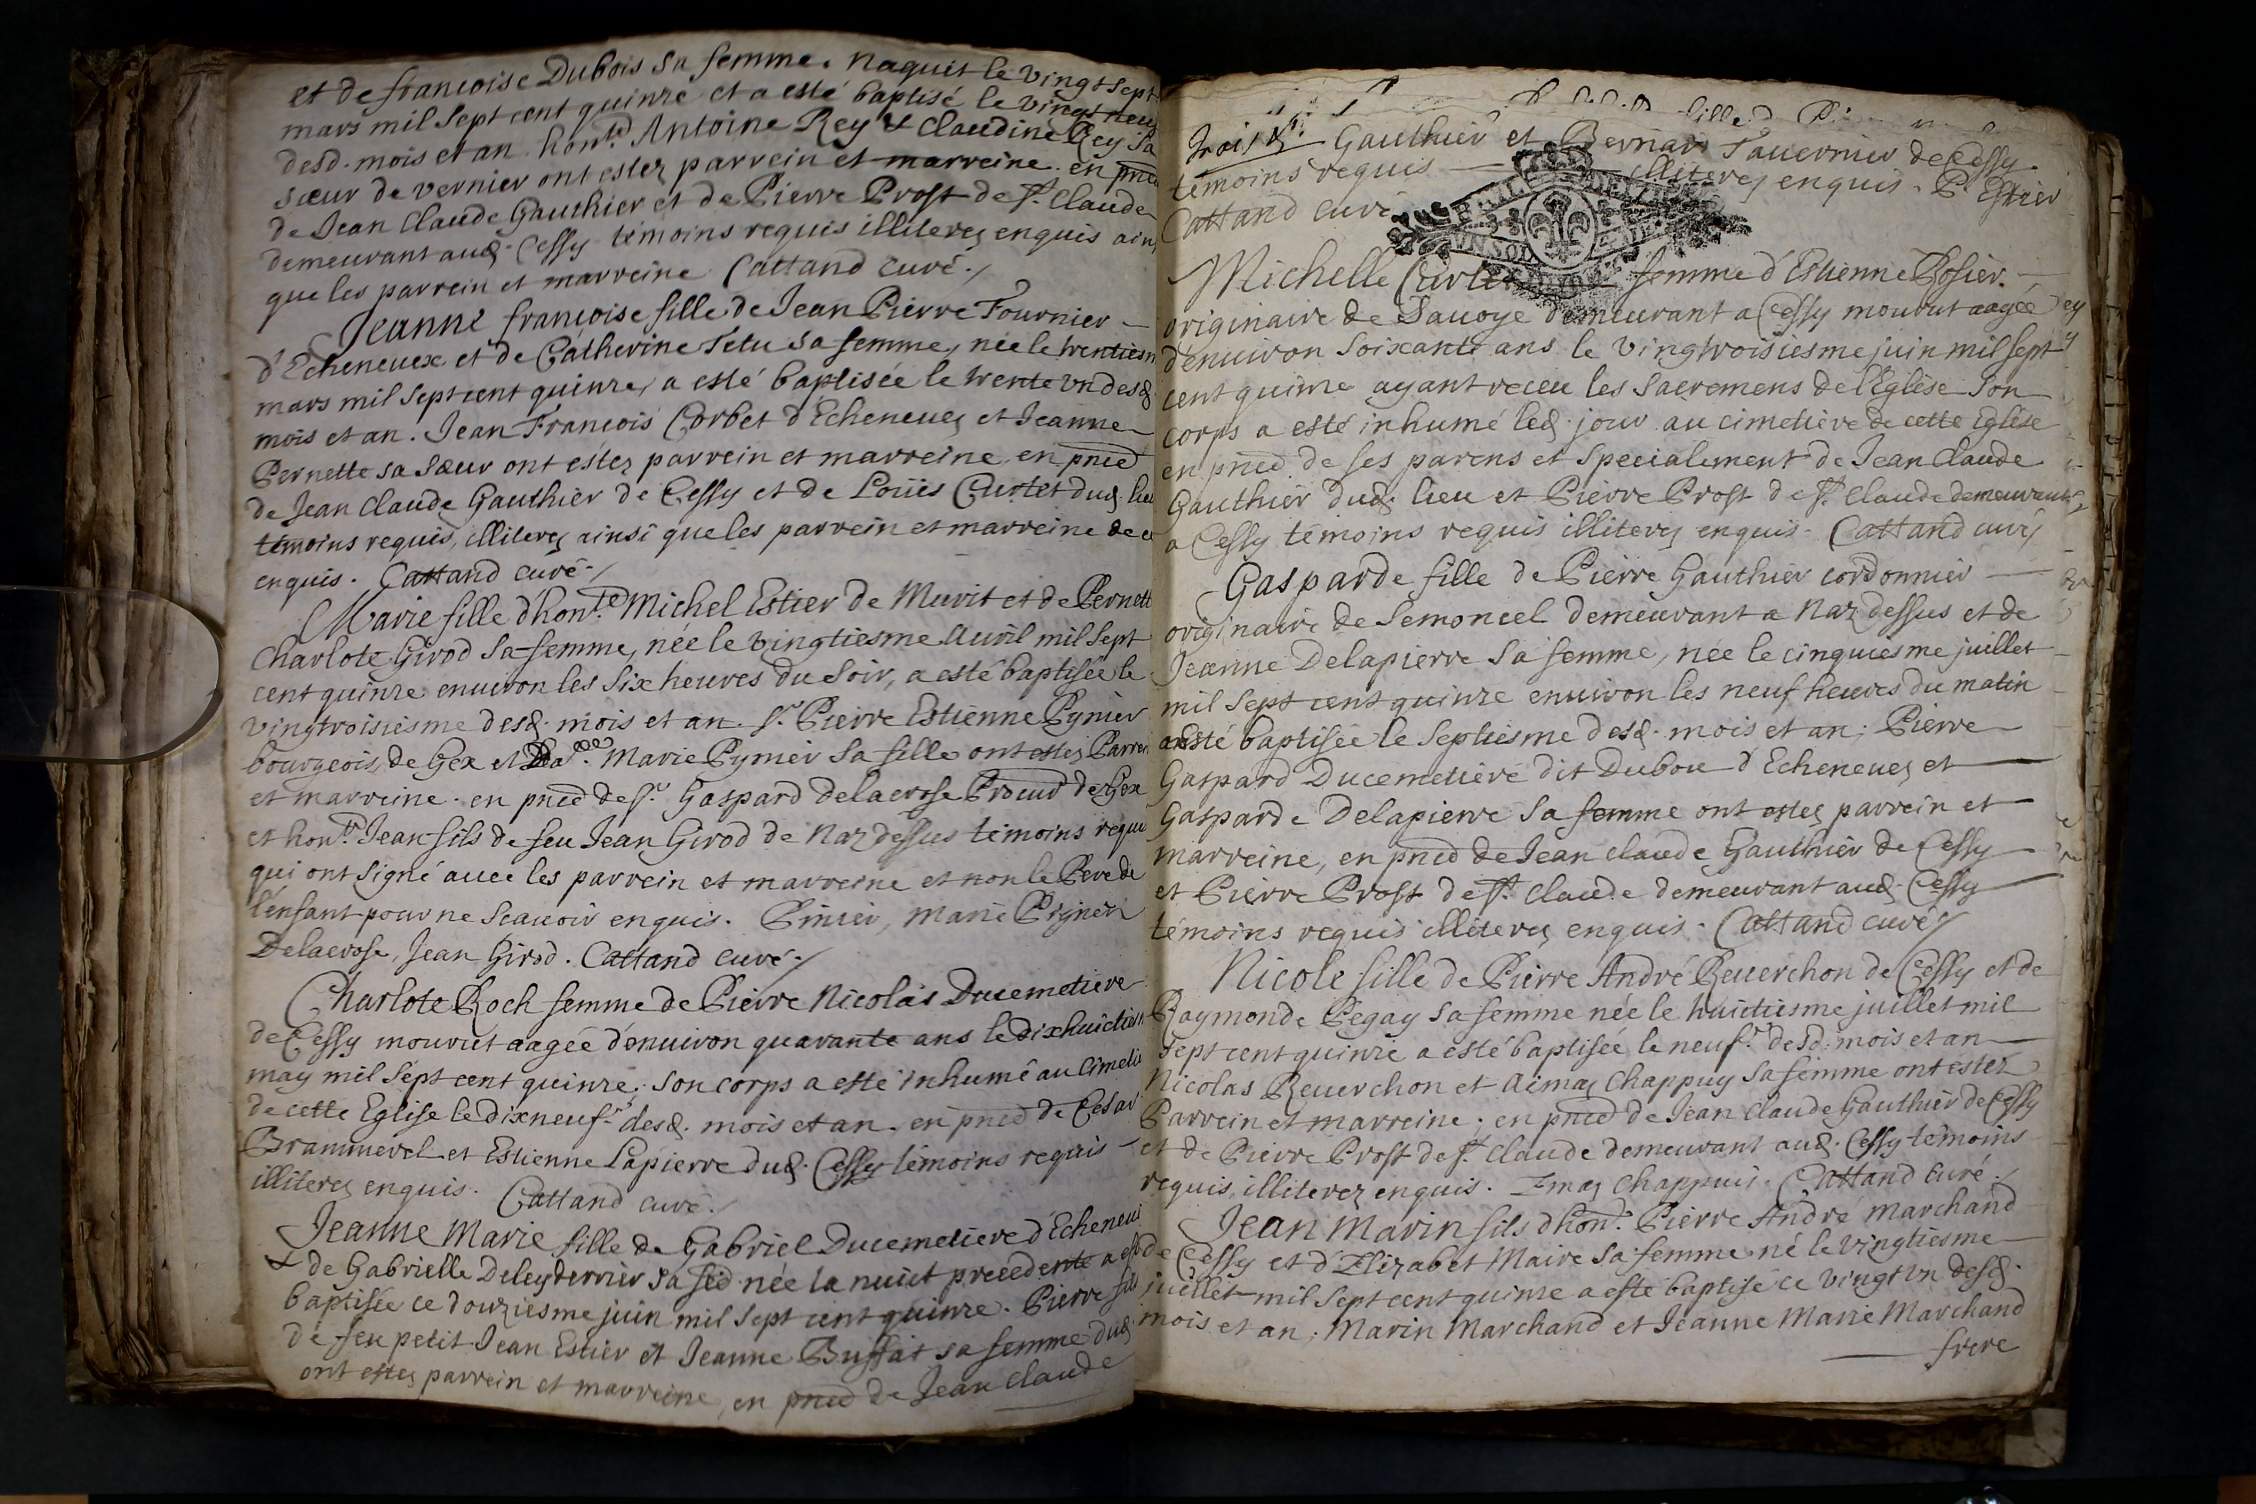 et de francoise Dubois sa femme. naquit le vingt sept
mars mil sept cent quinze et a esté baptisé le vingt neuf
desd. mois et an. hon.te Antoine Rey & Claudine Rey sa
sœur de vernier ont estez parrein et marreine. en pnce
de Jean Claude Gauthier et de Pierre Prost de St. Claude
demeurant aud. Cessy témoins requis illiterez enquis ain
que les parrein et marreine Cattand curé./
Jeanne francoise fille de Jean Pierre Fournier —
d'Echenevex et de Catherine Tetu sa femme, née le trentiesm
mars mil sept cent quinze, a esté baptisée le trente un desd.
mois et an. Jean Francois Corbet d'Echenevez et Jeanne
Pernette sa sœur ont estez parrein et marreine en pnce
de Jean Claude Gauthier de Cessy et de Loüis Curtet dud. lieu
témoins requis, illiterez ainsi que les parrein et marreine de ce
enquis. Cattand curé./
Marie fille d'hon.te Michel Estier de Murit et de Pernett
Charlote Girod sa femme, née le vingtiesme avril mil sept
cent quinze environ les six heures du soir, a esté baptisée le
vingtroisiesme desd. mois et an. Sr. Pierre Estienne Pynier
bourgeois de Gex et Dalle. Marie Pynier sa fille ont estez Parrei
et marreine. en pnce de Sr. Gaspard Delacrose Procur de Gex
et hon.te Jean fils de feu Jean Girod de Naz dessus témoins requi
qui ont signé avec les parrein et marreine et non le Pere de
l'enfant pour ne scavoir enquis. Pinier, Marie Pignier
Delacrose, Jean Girod. Cattand curé./
Charlote Roch femme de Pierre Nicolas Ducemetiere
de Cessy mourut aagée d'environ quarante ans le dixhuictiesm
may mil sept cent quinze; son corps a esté inhumé au Cimetie
de cette Eglise le dixneuf.e desd. mois et an. en pnce de Cesar
Brammerel et Estienne Lapierre dud. Cessy témoins requis —
illiterez enquis. Cattand curé./
Jeanne Marie fille de Gabriel Ducemetiere d'Echenevi
& de Gabrielle Deleyderrier sa fe née la nuict precedente a esté
baptisée ce douziesme juin mil sept cent quinze. Pierre fils
de feu petit Jean Estier et Jeanne Buffat sa femme dud.
ont estez parrein et marreine, en pnce de Jean Claude
Gauthier et Bernard Tavernier de Cessy
témoins requis — illiterez enquis. P. Estier
Cattand curé
Michelle Curtet — femme d'Estienne Rosier. —
originaire de Savoye demeurant a Cessy mourut aagée
d'environ soixante ans le vingtroisiesme juin mil sept
cent quinze ayant receu les sacremens de l'Eglise son
corps a esté inhumé led. jour au cimetière de cette Eglise
en pnce de ses parens et specialement de Jean Claude
Gauthier dud. lieu et Pierre Prost de St. Claude demeurants
a Cessy témoins requis illiterez enquis. Cattand curé
Gasparde fille de Pierre Gauthier cordonnier —
originaire de Semoncel demeurant a Naz dessus et de
Jeanne Delapierre sa femme, née le cinquiesme juillet
mil sept cent quinze environ les neuf heures du matin
a esté baptisée le septiesme desd. mois et an; Pierre
Gaspard Ducemetiere dit Dubou d'Echenevez et
Gasparde Delapierre sa femme ont estez parrein et
marreine, en pnce de Jean Claude Gauthier de Cessy
et Pierre Prost de St. Claude demeurant aud. Cessy
témoins requis illiterez enquis. Cattand curé/
Nicole fille de Pierre André Reverchon de Cessy et de
Raymonde Pegay sa femme née le huictiesme juillet mil
sept cent quinze a esté baptisée le neuf.e desd. mois et an
Nicolas Reverchon et Aimaz Chappuy sa femme ont estez
Parrein et marreine. en pnce de Jean Claude Gauthier de Cessy
et de Pierre Prost de St. Claude demeurant aud. Cessy témoins
requis, illiterez enquis. Emaz Chappuis. Cattand curé./
Jean Marin fils d'hon.te Pierre André Marchand
de Cessy et d'Elizabet Maire sa femme né le vingtiesme
juillet mil sept cent quinze a esté baptisé ce vingt un desd.
mois et an; Marin Marchand et Jeanne Marie Marchand
frere